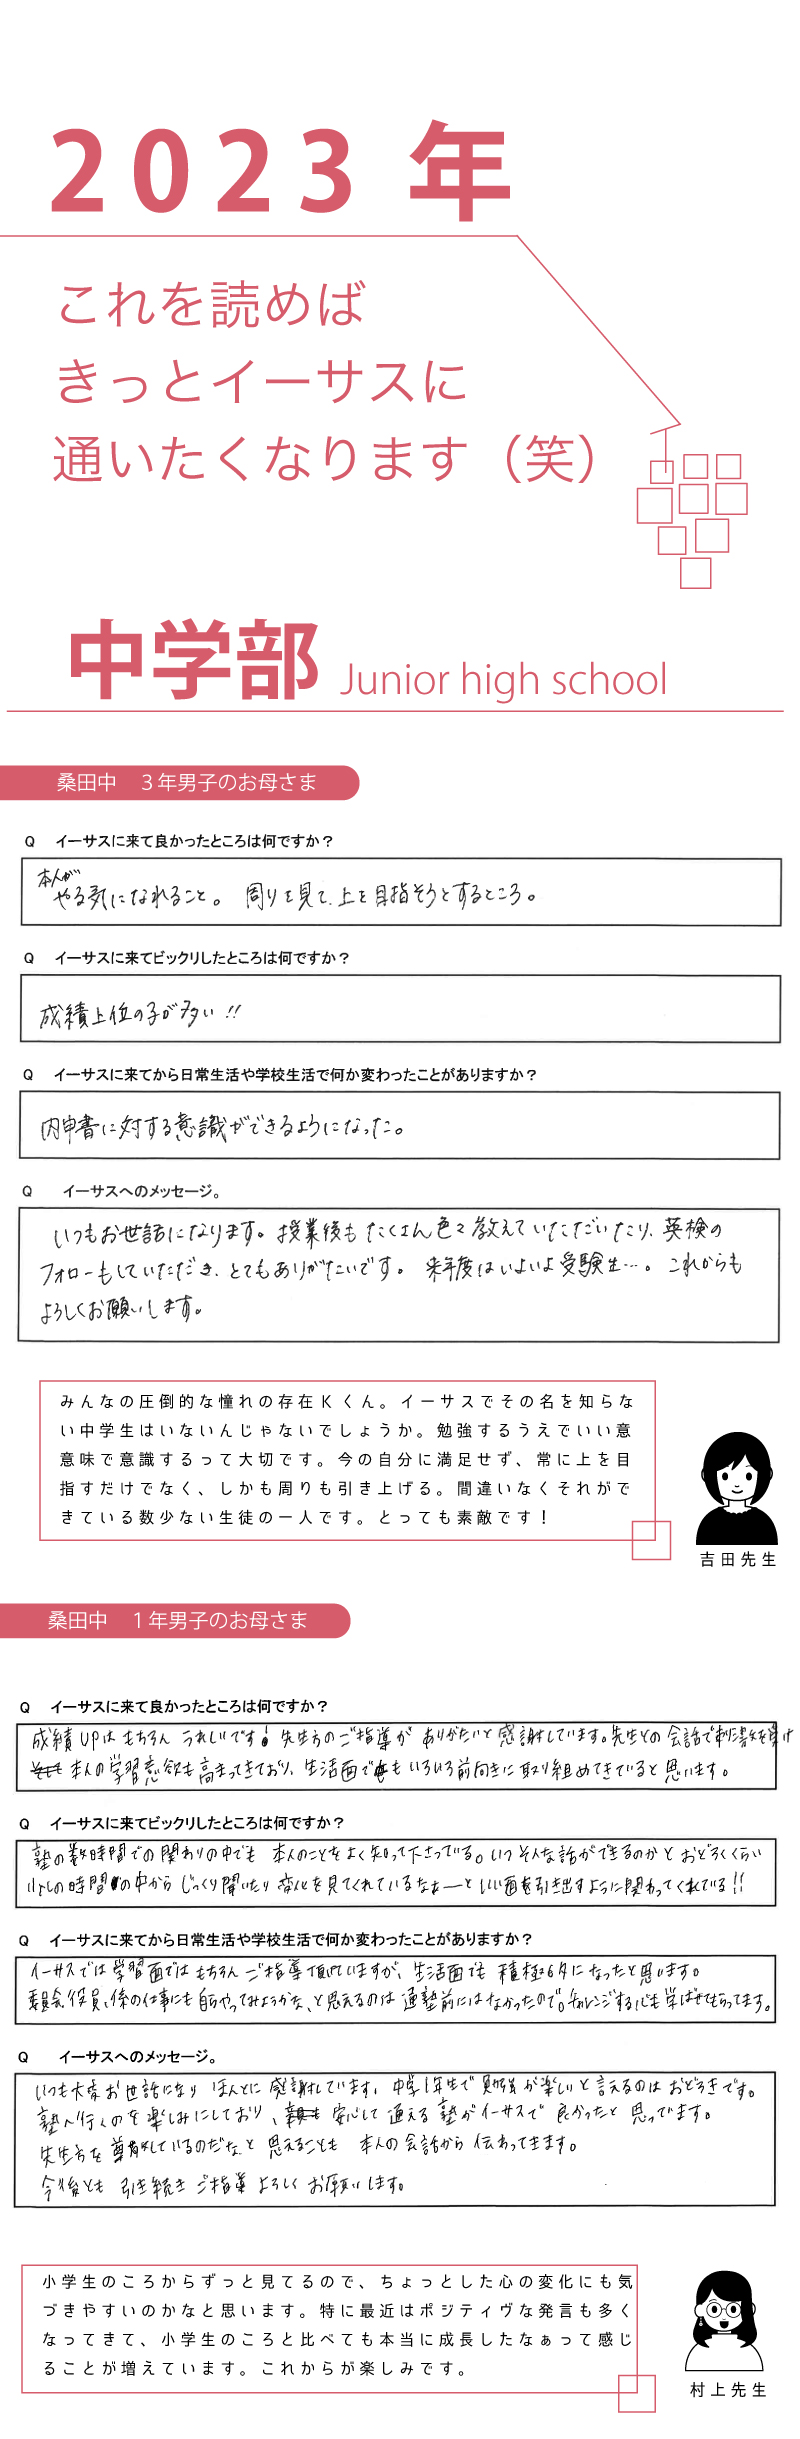 2023 年
これを読めば
きっとイーサスに
通いたくなります（笑）
中学部 Junior high school
桑田中　３年男子のお母さま
Q　イーサスに来て良かったところは何ですか？
本人が
やる気になれること。　周りを見て、上を目指そうとするところ。
Q　イーサスに来てビックリしたところは何ですか？
成績上位の子が多い!!
Q　イーサスに来てから日常生活や学校生活で何か変わったことがありますか？
内申書に対する意識ができるようになった。
Q　イーサスへのメッセージ。
いつもお世話になります。授業後もたくさん色々教えていただいたり、英検の
フォローもしていただき、とてもありがたいです。来年度はいよいよ受験生…。これからも
よろしくお願いします。
みんなの圧倒的な憧れの存在Kくん。イーサスでその名を知らな
い中学生はいないんじゃないでしょうか。勉強するうえでいい意
意味で意識するって大切です。今の自分に満足せず、常に上を目
指すだけでなく、しかも周りも引き上げる。間違いなくそれがで
きている数少ない生徒の一人です。とっても素敵です！
吉田先生
桑田中　１年男子のお母さま
Q　イーサスに来て良かったところは何ですか？
成績UPはもちろん うれしいです! 先生方のご指導が ありがたいと感謝しています。先生との会話で刺激を受け
本人の学習意欲も高まってきており、生活面でも いろいろ前向きに取り組めてきていると思います。
Q　イーサスに来てビックリしたところは何ですか？
塾の数時間での関わりの中でも 本人のことをよく知って下さっている。いつそんな話ができるのかと おどろくくらい
少しの時間の中から じっくり聞いたり 変化を見てくれているなぁーと いい面を引き出すように関わってくれている!!
Q　イーサスに来てから日常生活や学校生活で何か変わったことがありますか？
イーサスでは学習面ではもちろん ご指導頂いていますが、生活面でも 積極的になったと思います。
委員会、役員、係の仕事にも自らやってみようかな、と思えるのは 通塾前にはなかったので。チャレンジする心も学ばせてもらってます。
Q　イーサスへのメッセージ。
いつも大変お世話になり ほんとに感謝しています。中学1年生で勉強が楽しいと言えるのはおどろきです。
塾へ行くのを楽しみにしており、安心して通える塾がイーサスで 良かったと思ってます。
先生方を尊敬しているのだな、と思えることも 本人の会話から伝わってきます。
今後とも 引き続き ご指導 よろしくお願いします。
小学生のころからずっと見てるので、ちょっとした心の変化にも気
づきやすいのかなと思います。特に最近はポジティヴな発言も多く
なってきて、小学生のころと比べても本当に成長したなぁって感じ
ることが増えています。これからが楽しみです。
村上先生